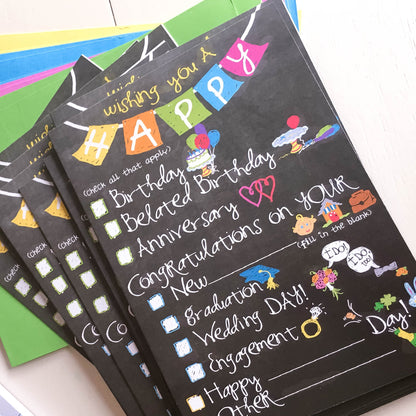 wishing you A
HAPPY
(check all that apply)
Birthday
Belated Birthday
Anniversary
Congratulations on YOUR
New
(fill in the blank)
Graduation
Wedding DAY!
I DO!
I DO, too!
Engagement
Happy Day!
Other